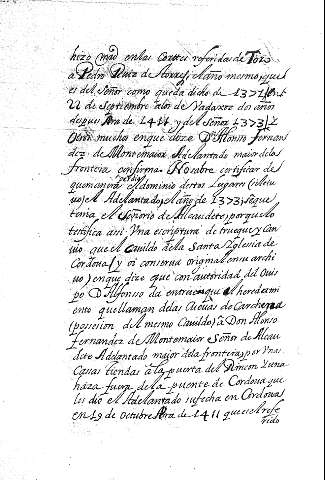 hizo mrd en las Cortes referidas de Toro
a Pedro Ruiz de Torres el año mesmo, que
es del Señor como queda dicho de 1371
22 de septiembre dos años
despues Era de 1411 y del Señor 1373
Otro mucho en que dize Dn Alonso Fernan
dez de Montemaior Adelantado maior de la
frontera confirma. Hombre certificar de
que manera el dominio destos Lugares
el Adelantado, el año de 1373 se que
tenia el Señorio de Alcaudete porque lo
testifica asi Una escriptura de trueque y Can
vio que el Cavildo de la Santa Iglesia de
Cordoua (y oi conserva original en su archi
vo) en que dize que con autoridad del Ouis
po D Alfonso da entrac que el heredam
iento que llaman de las Cuevas de Carchena
(posesion del mesmo Cavildo) a Don Alonso
Fernandez de Montemaior Señor de Alcau
dete Adelantado maior de la frontera, por Unas
Casas tiendas a la puerta del Rincon y una
haza fuera de la puente de Cordoua que
les dio el Adelantado su fecha en Cordoua
en 19 de octubre Era de 1411 que es el refe
rido